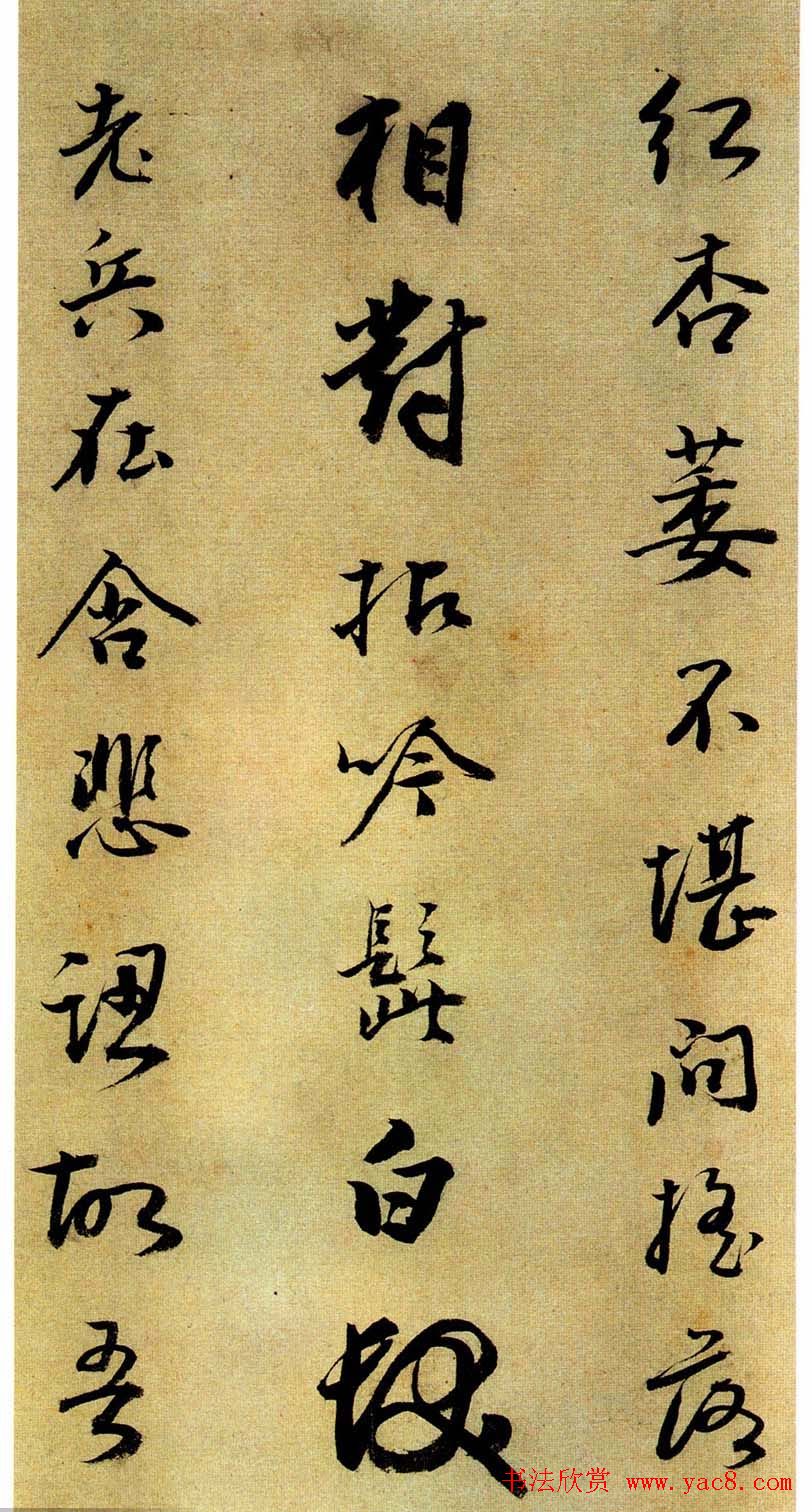 紅杏萎不堪問搖落
相對拈吟髭白髮
老兵在含悲認故吾
书法欣赏 www.yac8.com